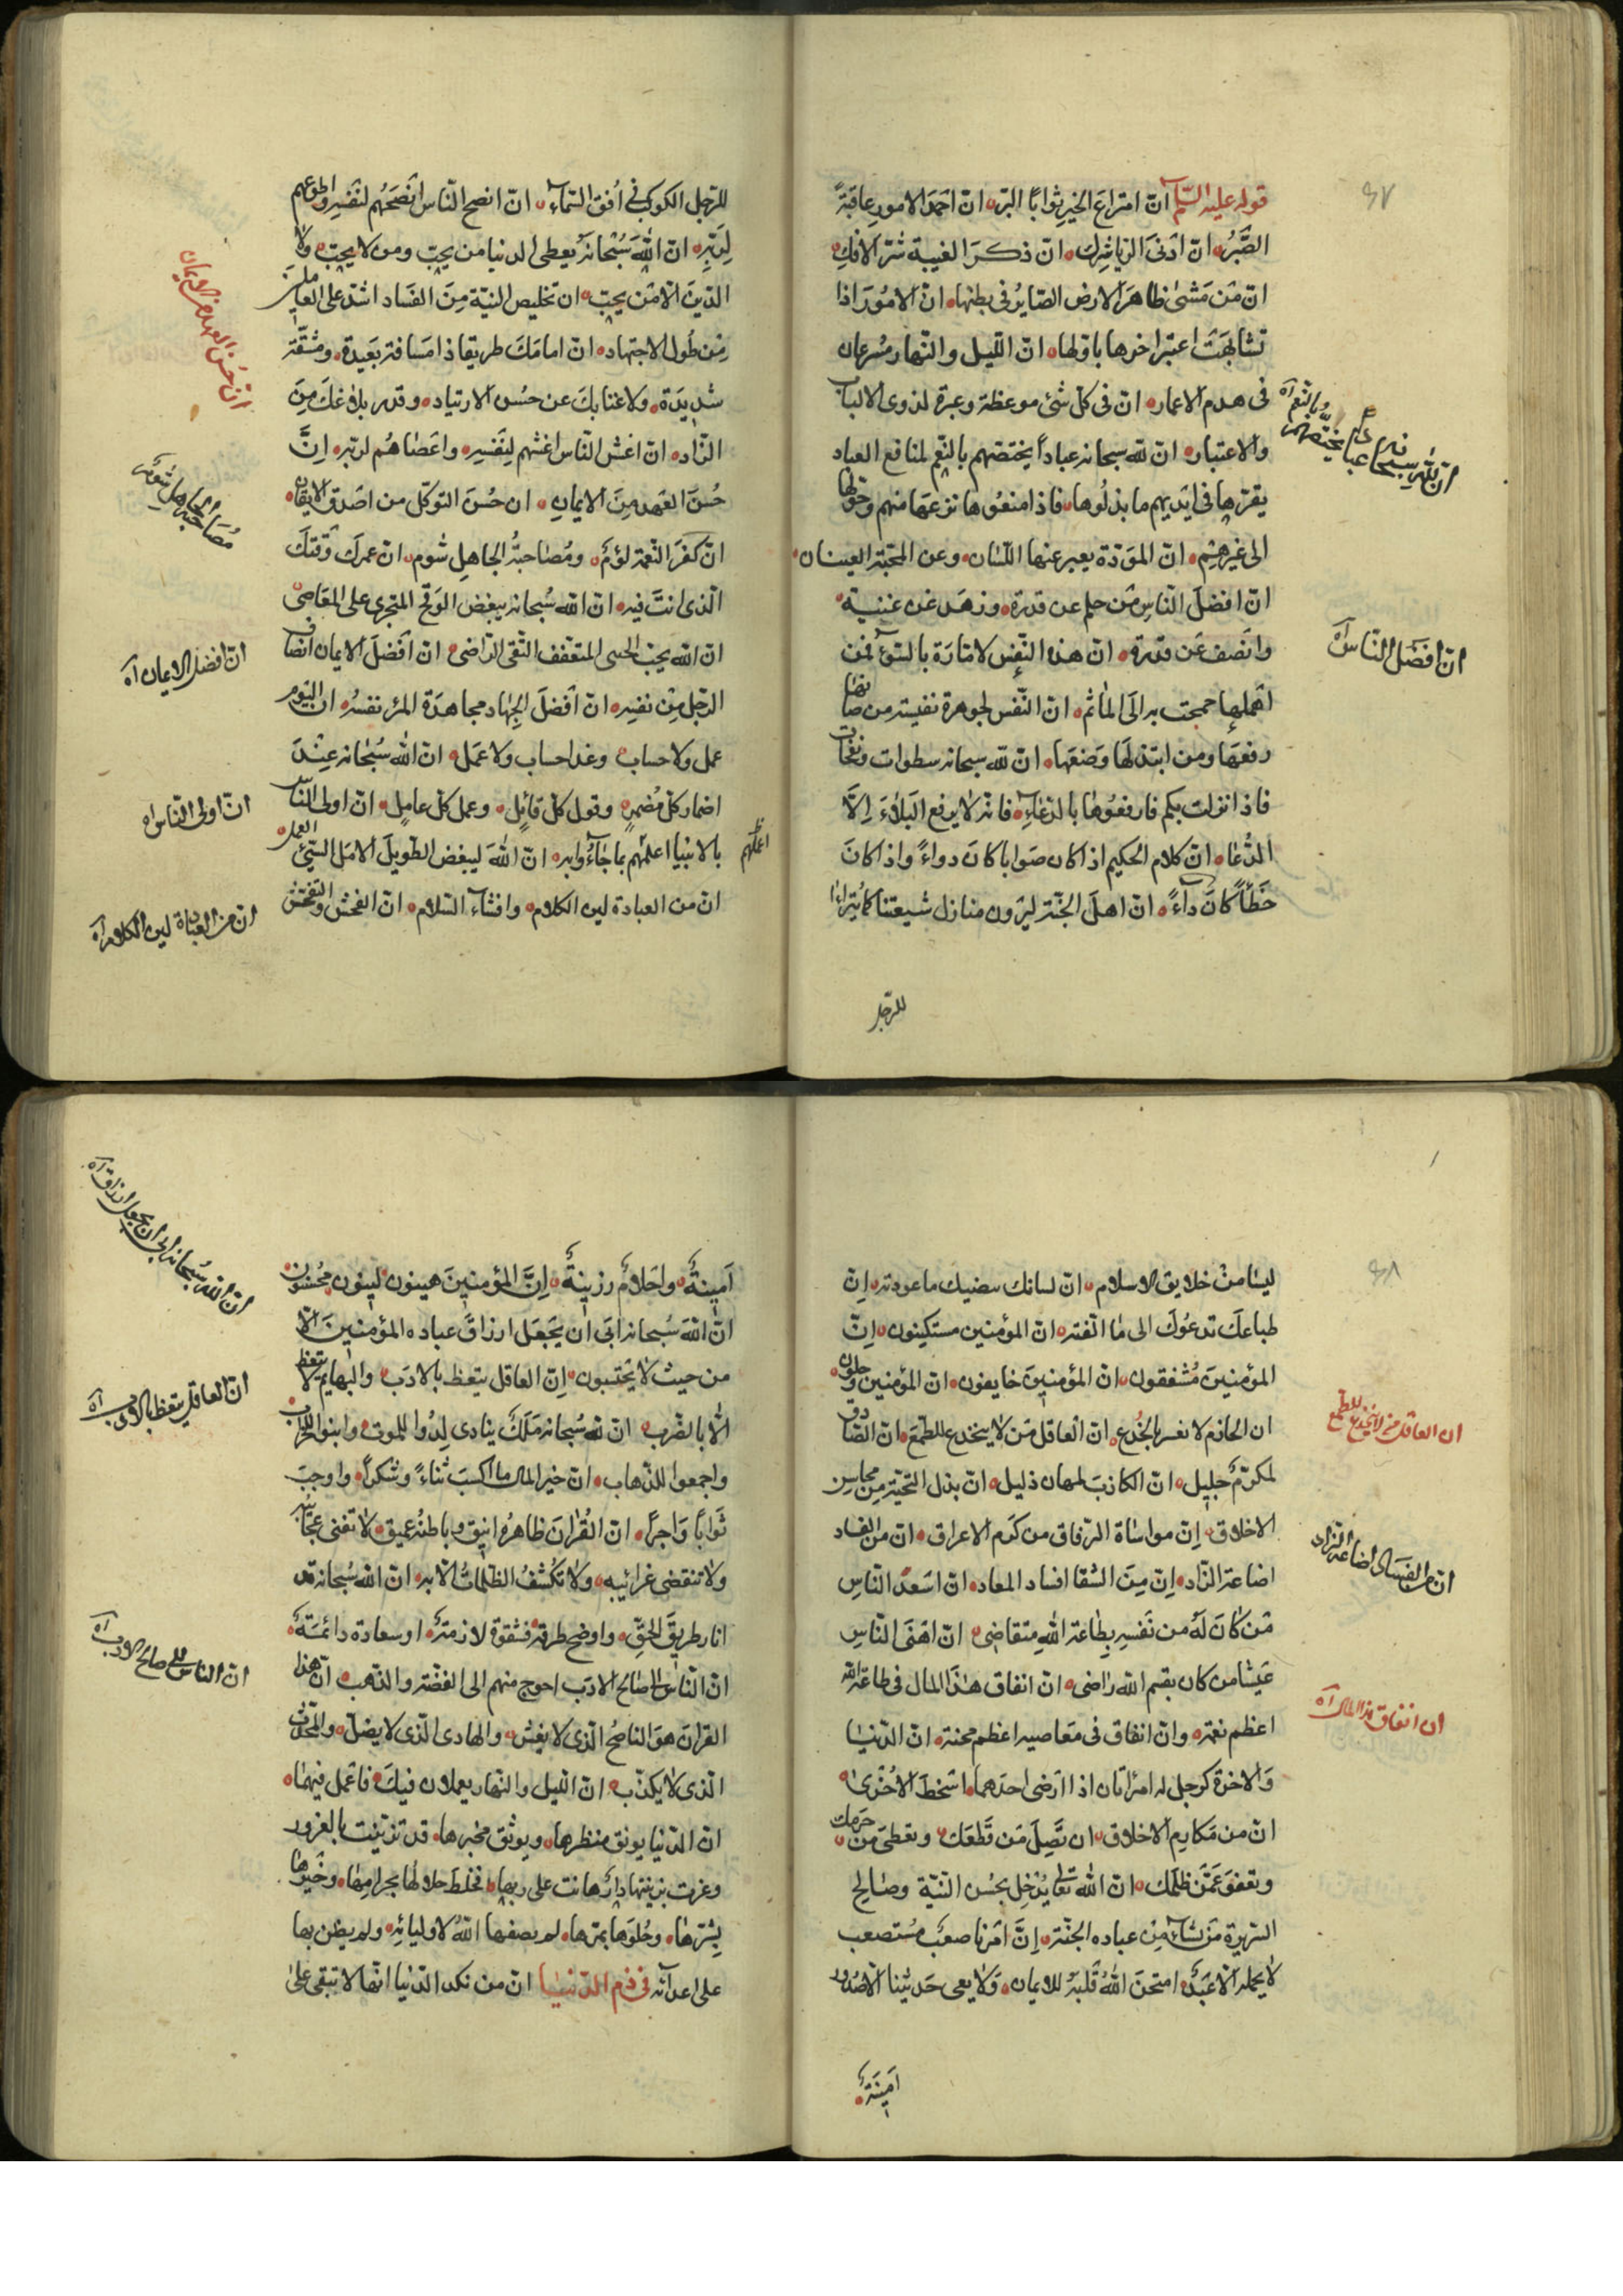 ٤٧
قوله عليه السلام انّ اسرع الخير ثوابًا البرّ انّ احمد الامور عاقبةً
الصَّبرُ انّ ادنى الريا شرك انّ ذكر الغيبة شرّ الافك
انّ من مشىٰ ظاهر الارض الصايرُ فى بطنها انّ الامُورَ اذا
تشابهت اعتبر اخرها باوّلها انّ اللّيل والنّهار مسرعان
فى هدم الاعمار انّ فى كلّ شئ موعظة وعبرة لذوى الالباب
والاعتبار انّ للّه سبحانه عباداً يختصّهم بالنّعم لمنافع العباد
يقرّها فى ايديهم ما بذلُوها فاذا منعُوها نزعها منهم وحوّلها
الى غيرهم انّ المودّة يعبر عنها اللّسان وعن المحبّة العينان
انّ افضلَ النّاس من حلم عن قدرة وزهد عن غنيبة
وانصف عن قدرة انّ هذه النّفس لامّارة بالسّوء فمن
اهملها جمحت به الَى المآثم انّ النّفس لجوهرة نفيسة من صانها
رفعها ومن ابتذلها وضعها انّ للّه سبحانه سطوات ونقمات
فاذا نزلت بكم فارفعُوها بالدّعاء فانّه لا يرفع البلاءَ الاّ
الدُّعا انّ كلام الحكيم اذا كان صوابا كان دواءً واذا كانَ
خطأً كانَ داءً انّ اهلَ الجنّة ليرون منازل شيعتنا كما يتراءا
للرّجل
انّ للّه سبحانه عبادا يختصّهم بالنّعم آه
انّ افضل النّاس آه
للرّجل الكوكب فى اُفق السّماء انّ انصح النّاس انصحُهم لنفسه واطوعهم
لربّه انّ اللّه سُبحانه يعطى الدنيا من يحبّ ومن لا يحبّ ولا
الدّين الاّ من يحبّ ان تخليص النيّة مِنَ الفساد اشدّ على العاملين
مِن طُول الاجتهاد انّ امامك طريقا ذا مسافة بعيدة ومشقّة
شديدة ولا غنا بك عن حسُن الارتياد وقدر بلاغك مِنَ
الزّاد انّ اغشّ النّاس اغشّهم لنفسه واعصاهُم لربّه انّ
حُسن العهد مِنَ الايمان ان حُسن التوكّل من اصدق الايقان
انّ كفر النّعمة لؤم ومُصاحبة الجاهل شوم انّ عمرك وقتك
الّذى انت فيه انّ اللّه سُبحانه يبغض الوقح المتجرى على المعاصى
انّ اللّه يحبّ الحيى المتعفّف التّقى الرّاضى انّ افضل الايمان انصاف
الرّجل مِن نفسه انّ افضل الجهاد مجاهدة المرء نفسهُ ان اليوم
عمل ولا حساب وغدا حساب ولا عمل انّ اللّه سُبحانه عند
اضمار كلّ مُضمر وقول كلّ قائل وعمل كلّ عامل انّ اولى النّاس
بالانبيا اعلمهُم بما جاءُوا به انّ اللّه ليبغض الطّويل الامل السّيّئ العمل
انّ من العبادة لين الكلام وافشاء السّلام انّ الفحش والتفحّش
انّ حسن العهد من الايمان
مُصاحبة الجاهل شوم
انّ افضل الايمان آه
انّ اولى النّاس آه
اعملهم
انّ من العبادة لين الكلام آه
٤٨
ليسا من خلايق الاسلام انّ لسانك يقتضيك ما عودته انّ
طباعك تدعُوك الى ما الفته انّ المؤمنين مستكينون انّ
المؤمنين مُشفقون انّ المؤمنين خايفون انّ المؤمنين وجلون
ان الحازم لا يغتر بالخُدع انّ العاقل من لا ينخدع للطّمع انّ الصّادق
لمكرّم جليل انّ الكاذب لمهان ذليل انّ بذل التّحيّة من محاسن
الاخلاق انّ مواساة الرّفاق من كرم الاعراق انّ من الفساد
اضاعة الزّاد انّ مِنَ الشقا افساد المعاد انّ اسعد النّاس
من كان له من نفسه بطاعة اللّه متقاضى انّ اهنى النّاس
عيشا من كان بقسم اللّه راضى انّ انفاق هذا المال فى طاعة اللّه
اعظم نعمة وانّ انفاق فى معاصيه اعظم محنة انّ الدّنيا
والاخرة كرجل له امرأتان اذا ارضى احدهما اسخط الاخرىٰ
انّ من مكارم الاخلاق ان تصِلَ من قطعك وتعطى من حرمك
وتعفو عمّن ظلمك انّ اللّه تعالى يُدخل بحسُن النيّة وصالح
السّريرة من يشاء مِن عباده الجنّة انّ امرنا صعبٌ مُستصعب
لا يحمله الاّ عبد امتحن اللّه قلبه للايمان ولا يعى حديثنا الاّ صُدور
امينةٌ
ان العاقل من لا ينخدع للطمع
انّ من الفساد اضاعة الزّاد
ان انفاق هذا المال آه
امينةٌ واحلامٌ رزينةٌ انّ المؤمنين هينون لينون محُسنون
انّ اللّه سُبحانه ابى ان يجعل ارزاق عباده المؤمنين الاّ
من حيث لا يحتسبون انّ العاقل يتعظ بالادب والبهايم لا تتعظ
الاّ بالضّرب انّ للّه سُبحانه ملك ينادى لِدُوا للموت وابنوا للخراب
واجمعوا للذّهاب انّ خير المال ما اكسب ثناءً وشكراً واوجب
ثواباً واجراً انّ القُرآن ظاهرُه انيق وباطنُه عميق لا تفنى عجايبه
ولا تنقضى غرائبه ولا تكشفُ الظّلمات الاّ به انّ اللّه سُبحانه قد
انار طريق الحقّ واوضح طرقه فشقوة لازمة او سعادة دائمة
انّ النّاس الى صالح الادب احوج منهم الى الفضّة والذّهب انّ هذا
القرآن هو النّاصحُ الّذى لا يغشّ والهادى الّذى لا يضلّ والمحدّث
الّذى لا يكذب انّ اللّيل والنّهار يعملان فيك فاعمل فيهما
انّ الدّنيا يونق منظرها ويوثق مخبرها قد تزيّنت بالغرور
وغرت بزينتها دارٌ هانت على ربها فخلط حلالها بحرامها وخيرها
بشرّها وحُلوها بمرّها لم يصفها اللّهُ لاوليائه ولم يضن بها
على اعدائه فى ذمّ الدّنيا انّ من نكد الدّنيا انّها لا تبقى على
انّ اللّه سُبحانه ابى ان يجعل ارزاق آه
انّ العاقل يتعظ بالادب آه
انّ الناس الى صالح الادب آه